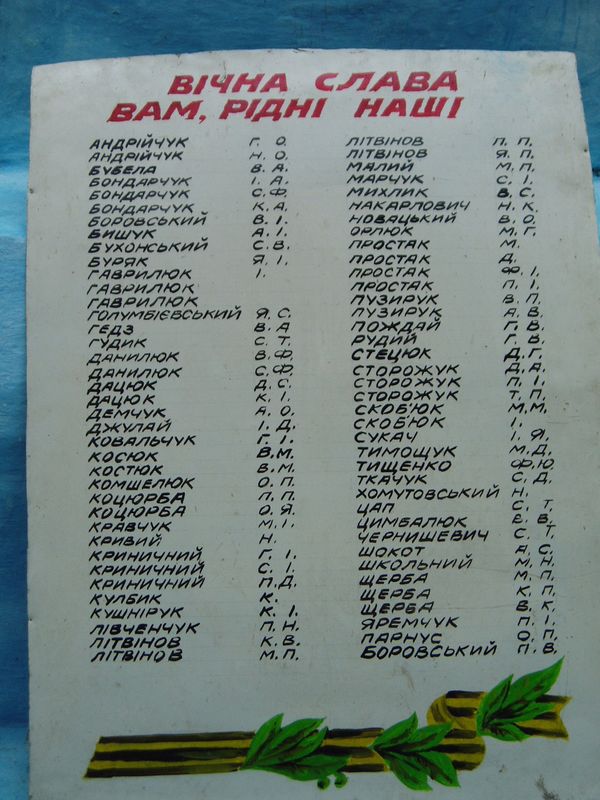 ВІЧНА СЛАВА
ВАМ, РІДНІ НАШІ
АНДРІЙЧУК Г. О.
АНДРІЙЧУК Н. О.
БУБЕЛА В. А.
БОНДАРЧУК І. А.
БОНДАРЧУК С. Ф.
БОНДАРЧУК К. А.
БОРОВСЬКИЙ В. І.
БИШУК А. І.
БУХОНСЬКИЙ С. В.
БУРЯК Я. І.
ГАВРИЛЮК І.
ГАВРИЛЮК
ГАВРИЛЮК
ГОЛУМБІЄВСЬКИЙ Я. С.
ГЕДЗ В. А
ГУДИК С. Т.
ДАНИЛЮК В. Ф.
ДАНИЛЮК С. Ф.
ДАЦЮК Д. С.
ДАЦЮК К. І.
ДЕМЧУК А. О.
ДЖУЛАЙ І. Д.
КОВАЛЬЧУК Г. І.
КОСЮК В. М.
КОСТЮК В. М.
КОМШЕЛЮК О. П.
КОЦЮРБА П. П.
КОЦЮРБА О. Я.
КРАВЧУК М. І.
КРИВИЙ Н.
КРИНИЧНИЙ Г. І.
КРИНИЧНИЙ С. І.
КРИНИЧНИЙ П. Д.
КУЛБИК К.
КУШНІРУК К. І.
ЛІВЧЕНЧУК П. Н.
ЛІТВІНОВ К. В.
ЛІТВІНОВ М. П.
ЛІТВІНОВ П. П.
ЛІТВІНОВ Я. П.
МАЛИЙ М. П.
МАРЧУК С. І.
МИХЛИК В. С.
НАКАРЛОВИЧ Н. К.
НОВАЦЬКИЙ В. О.
ОРЛЮК М. Г.
ПРОСТАК М.
ПРОСТАК Д.
ПРОСТАК Ф. І.
ПРОСТАК П. І.
ПУЗИРУК В. П.
ПУЗИРУК А. В.
ПОЖДАЙ Г. В.
РУДИЙ Г. В.
СТЕЦЮК Д. Г.
СТОРОЖУК Д. А.
СТОРОЖУК П. І.
СТОРОЖУК Т. П.
СКОБ'ЮК М. М.
СКОБ'ЮК І.
СУКАЧ І. Я.
ТИМОЩУК М. Д.
ТИЩЕНКО Ф. Ю.
ТКАЧУК С. Д.
ХОМУТОВСЬКИЙ Н.
ЦАП С. Т.
ЦИМБАЛЮК Е. В.
ЧЕРНИШЕВИЧ С. Т.
ШОКОТ А. С.
ШКОЛЬНИЙ М. Н.
ЩЕРБА М. П.
ЩЕРБА К. П.
ЩЕРБА В. К.
ЯРЕМЧУК П. І.
ПАРНУС О. П.
БОРОВСЬКИЙ П. В.